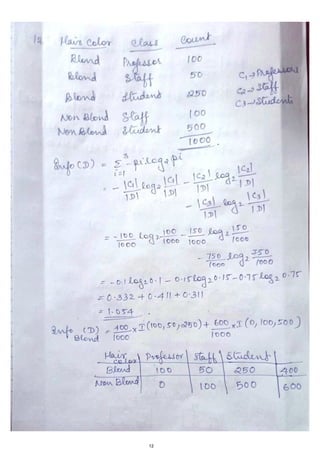 12 Hair Color Class Count
Blond Professor 100
Blond Staff 50 C1→Professors
Blond Student 250 C2→Staff
Non Blond Staff 100 C3→Students
Non Blond Student 500
1000
Info(D) = 3 Σ i=1 -pi log2 pi
= - |C1| / |D| log2 |C1| / |D| - |C2| / |D| log2 |C2| / |D|
- |C3| / |D| log2 |C3| / |D|
= - 100/1000 log2 100/1000 - 150/1000 log2 150/1000
- 750/1000 log2 750/1000
= -0.1log2 0.1 - 0.15log2 0.15 - 0.75 log2 0.75
= 0.332 + 0.411 + 0.311
= 1.054.
Info Blond (D) = 400/1000 x I(100,50,250) + 600/1000 x I(0,100,500)
Hair color Professor Staff Student
Blond 100 50 250 400
Non Blond 0 100 500 600
12